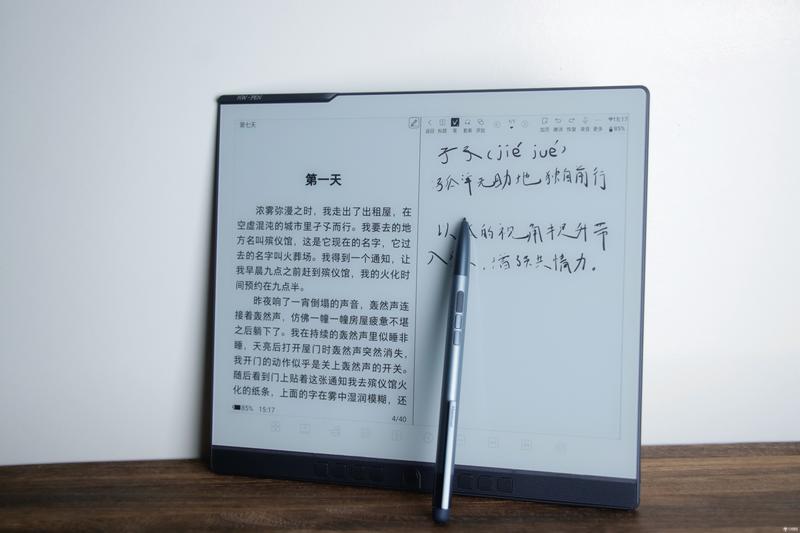 第七天
15:17
返回 标题 笔 套索 加页 撤销 恢复 录音 更多 85%
第一天
浓雾弥漫之时，我走出了出租屋，在
空虚混沌的城市里孑孓而行。我要去的地
方名叫殡仪馆，这是它现在的名字，它过
去的名字叫火葬场。我得到一个通知，让
我早晨九点之前赶到殡仪馆，我的火化时
间预约在九点半。
昨夜响了一宵倒塌的声音，轰然声连
接着轰然声，仿佛一幢一幢房屋疲惫不堪
之后躺下了。我在持续的轰然声里似睡非
睡，天亮后打开屋门时轰然声突然消失，
我开门的动作似乎是关上轰然声的开关。
随后看到门上贴着这张通知我去殡仪馆火
化的纸条，上面的字在雾中湿润模糊，还
85% 15:17
4/40
孑孓(jié jué)
孤单无助地独自前行
以 的视角 带
入 共情力。